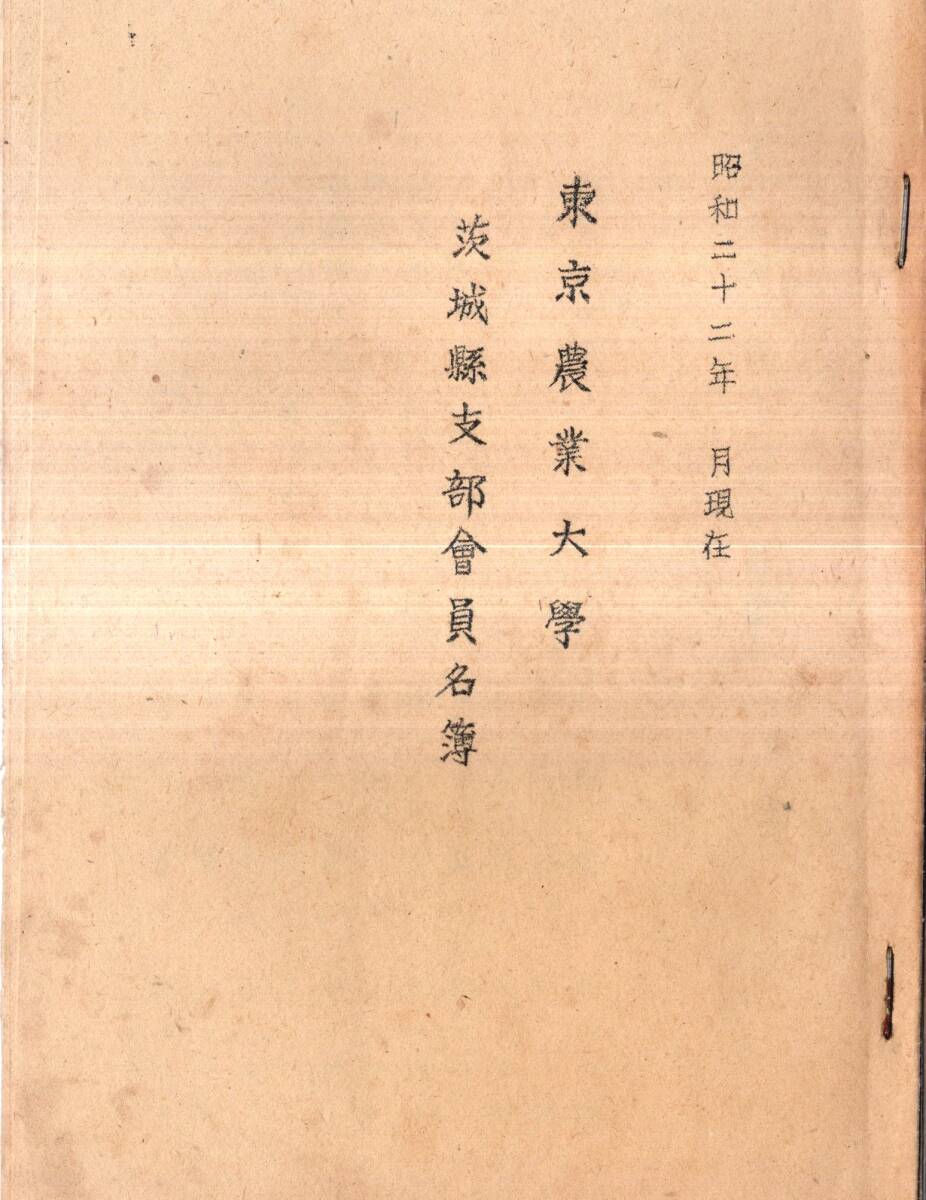 昭和二十二年　月現在
東京農業大學
茨城縣支部會員名簿